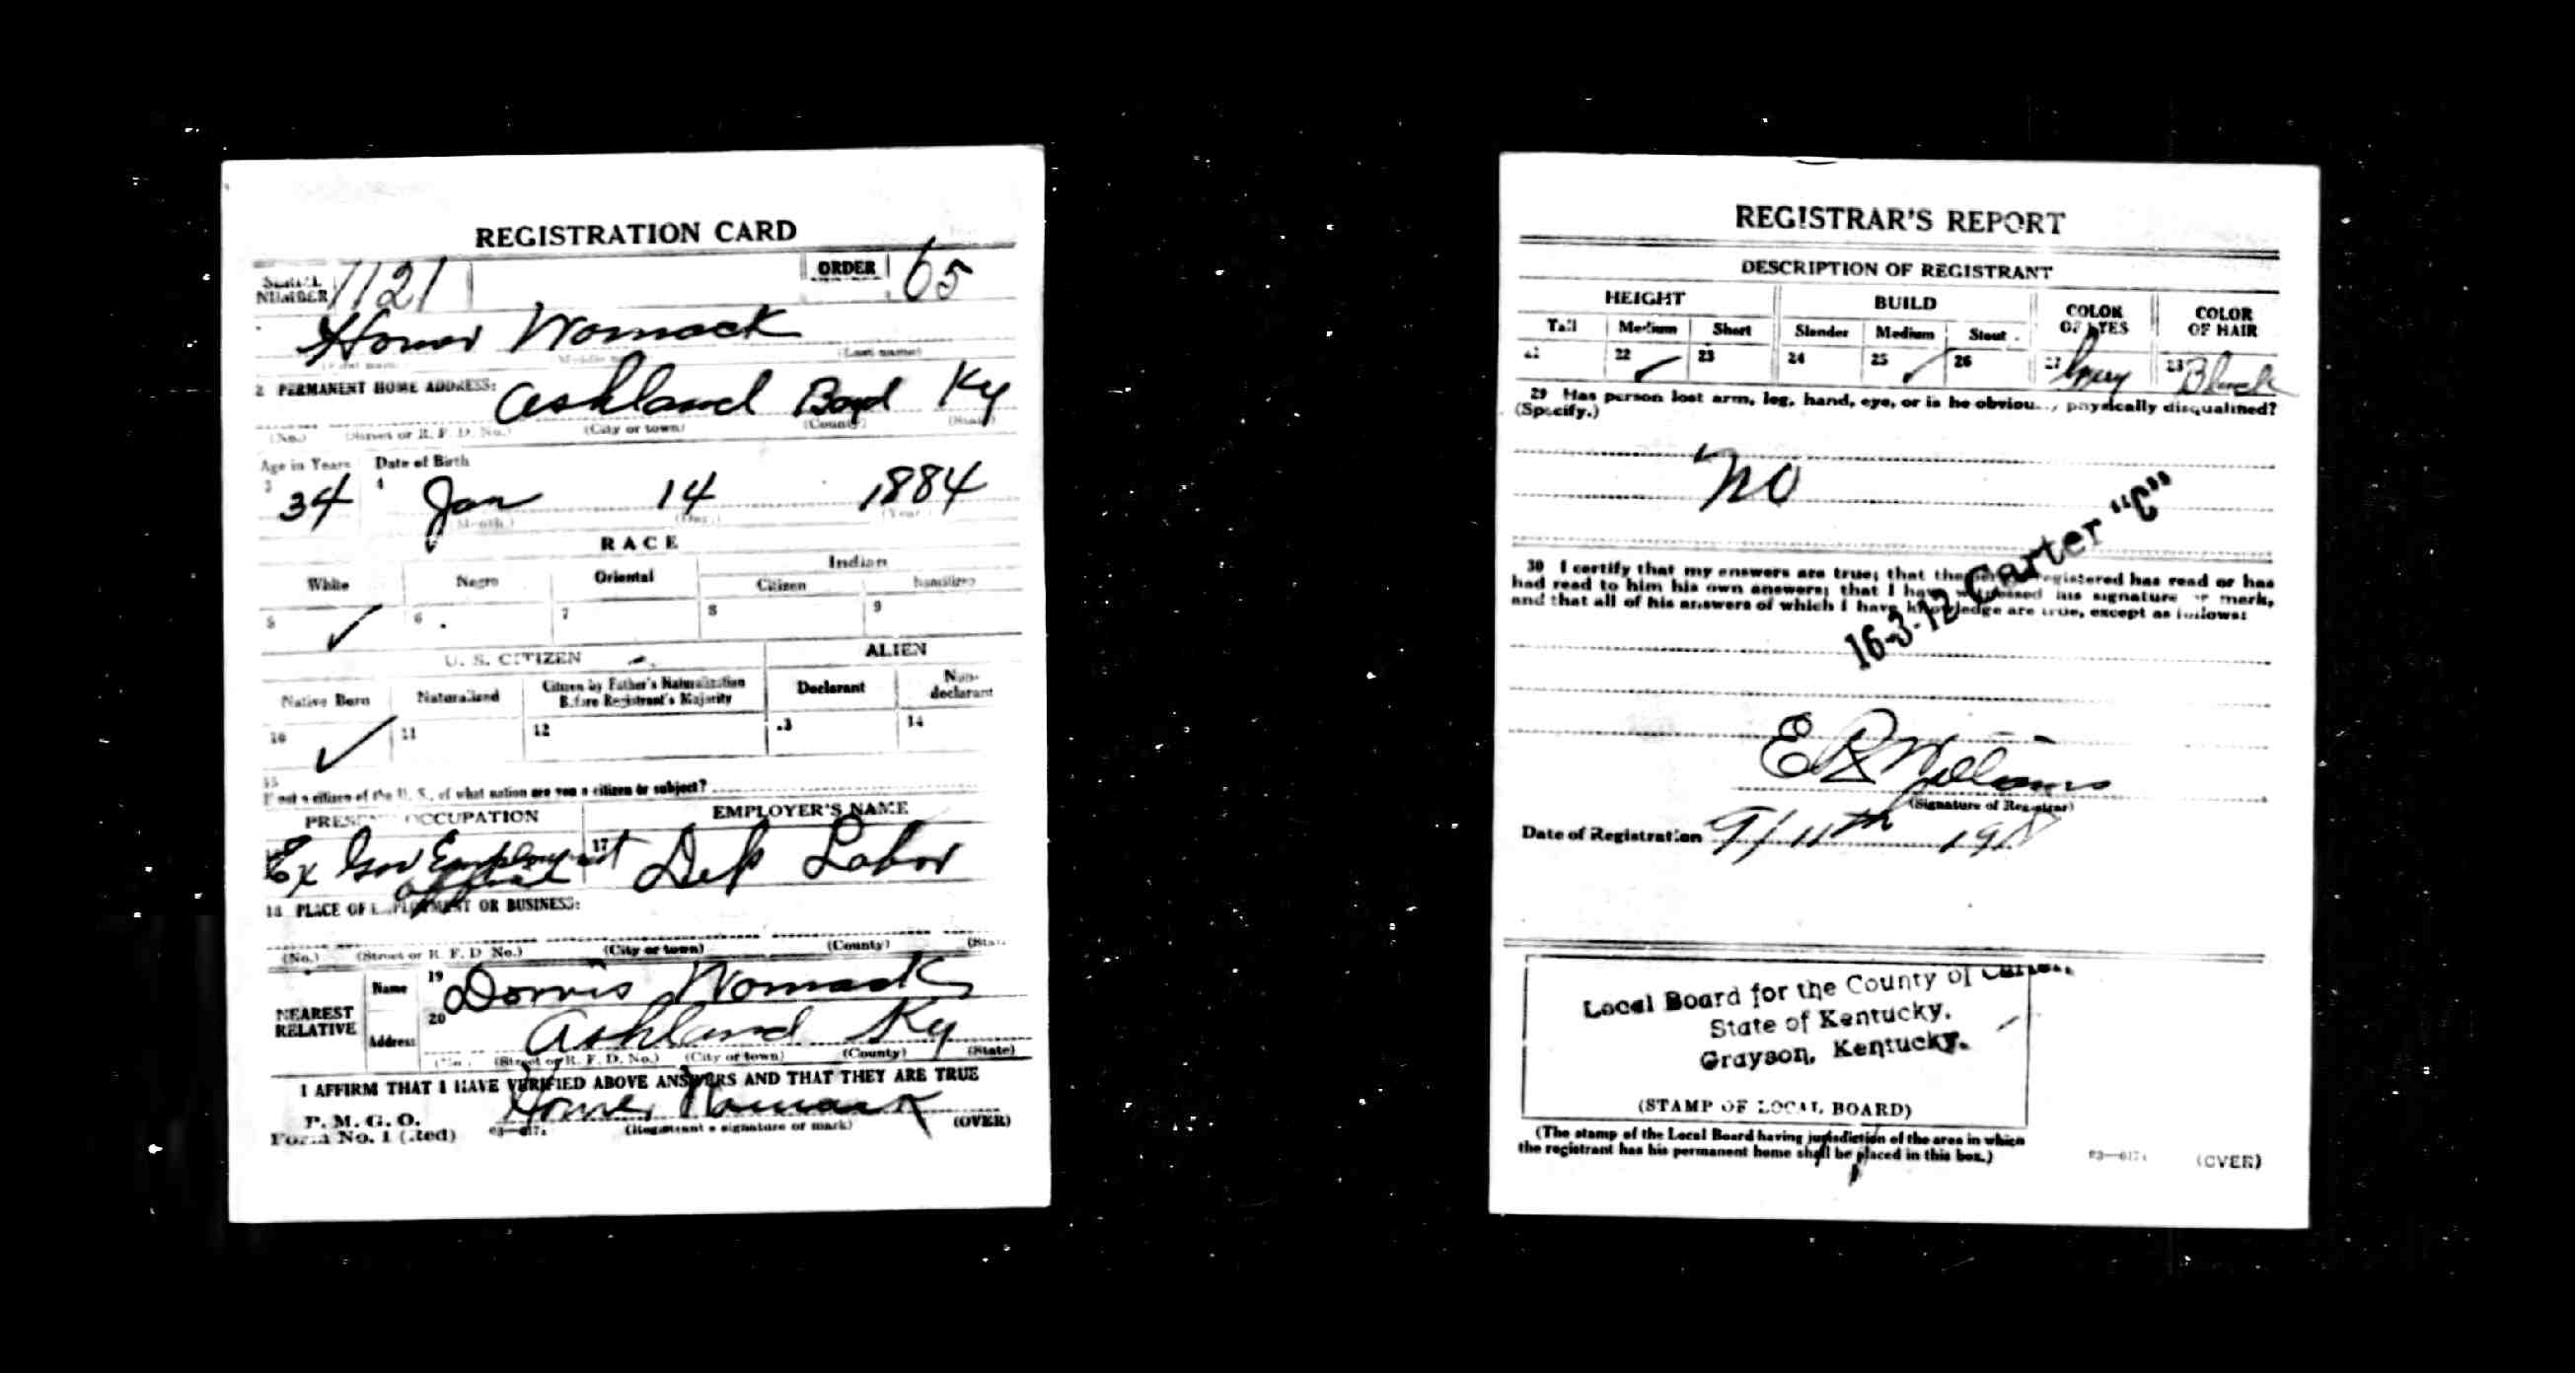 REGISTRATION CARD
SERIAL NUMBER 1121 ORDER 65
Homer Womack
(Last name)
2 PERMANENT HOME ADDRESS: Ashland Boyd Ky
(No.) (Street or R. F. D. No.) (City or town) (County) (State)
Age in Years Date of Birth
3 34 4 Jan 14 1884
(Month.) (Day.) (Year.)
RACE
White Negro Oriental Indian
Citizen
5 ✓ 6 7 8 9
U. S. CITIZEN ALIEN
Native Born Naturalized Citizen by Father's Naturalization Before Registrant's Majority Declarant Non-declarant
10 ✓ 11 12 13 14
15
If not a citizen of the U. S., of what nation are you a citizen or subject?
PRESENT OCCUPATION EMPLOYER'S NAME
Ex Gov Employment 17 Dep Labor
official
18 PLACE OF EMPLOYMENT OR BUSINESS:
(No.) (Street or R. F. D. No.) (City or town) (County) (State)
NEAREST RELATIVE
Name 19 Dorris Womack
Address 20 Ashland Ky
(No.) (Street or R. F. D. No.) (City or town) (County) (State)
I AFFIRM THAT I HAVE VERIFIED ABOVE ANSWERS AND THAT THEY ARE TRUE
P. M. G. O.
Form No. 1 (Red) Homer Womack
(Registrant's signature or mark) (OVER)
REGISTRAR'S REPORT
DESCRIPTION OF REGISTRANT
HEIGHT BUILD COLOR OF EYES COLOR OF HAIR
Tall Medium Short Slender Medium Stout
21 22 ✓ 23 24 25 ✓ 26 27 Grey 28 Black
29 Has person lost arm, leg, hand, eye, or is he obviously physically disqualified?
(Specify.)
No
30 I certify that my answers are true; that the person registered has read or has
had read to him his own answers; that I have witnessed his signature or mark,
and that all of his answers of which I have knowledge are true, except as follows:
16-3-12 Carter "C"
E R Williams
(Signature of Registrar)
Date of Registration 9/11th 1918
Local Board for the County of Carter,
State of Kentucky,
Grayson, Kentucky.
(STAMP OF LOCAL BOARD)
(The stamp of the Local Board having jurisdiction of the area in which
the registrant has his permanent home shall be placed in this box.)
(OVER)